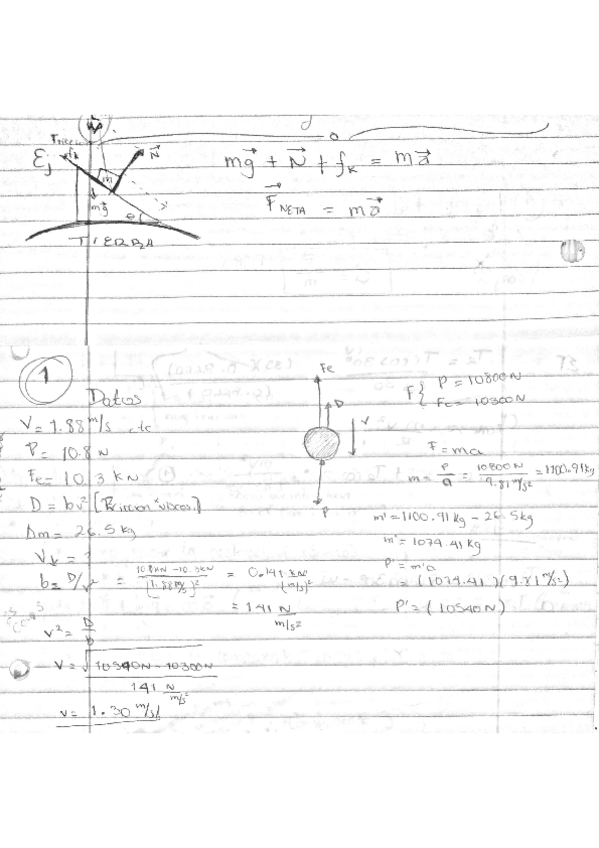 Ej
fk
N⃗
m
mg⃗
θ
x
TIERRA
mg⃗ + N⃗ + fk = ma⃗
F⃗NETA = ma⃗
1
Datos
V = 1.88 m/s , cte
P = 10.8 N
Fe = 10.3 kN
D = bv² [Friccion viscos.]
Δm = 26.5 kg
V↓ = ?
b = D/v² = 10.8kN - 10.3kN / (1.88 m/s)² = 0.141 kN/(m/s)²
= 141 N/m/s²
v² = D/b
v = √ 10540N - 10300N / 141 N/m/s²
v = 1.30 m/s
Fe
D
V
P
F { P = 10800N
Fe = 10300N
F = ma
m = P/g = 10800N/9.81 m/s² = 1100.91kg
m' = 1100.91 kg - 26.5kg
m' = 1074.41 kg
P' = m'a
= (1074.41)(9.81 m/s²)
P' = (10540N)